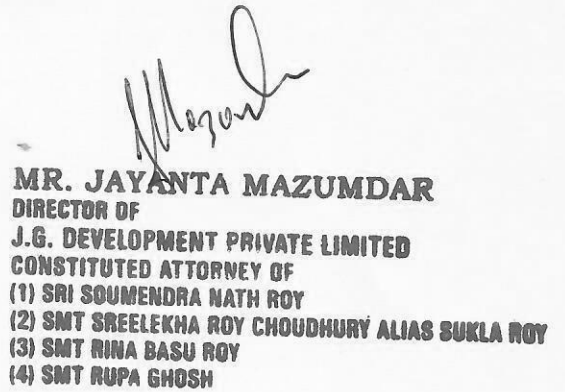 MR. JAYANTA MAZUMDAR
DIRECTOR OF
J.G. DEVELOPMENT PRIVATE LIMITED
CONSTITUTED ATTORNEY OF
(1) SRI SOUMENDRA NATH ROY
(2) SMT SREELEKHA ROY CHOUDHURY ALIAS SUKLA ROY
(3) SMT RINA BASU ROY
(4) SMT RUPA GHOSH